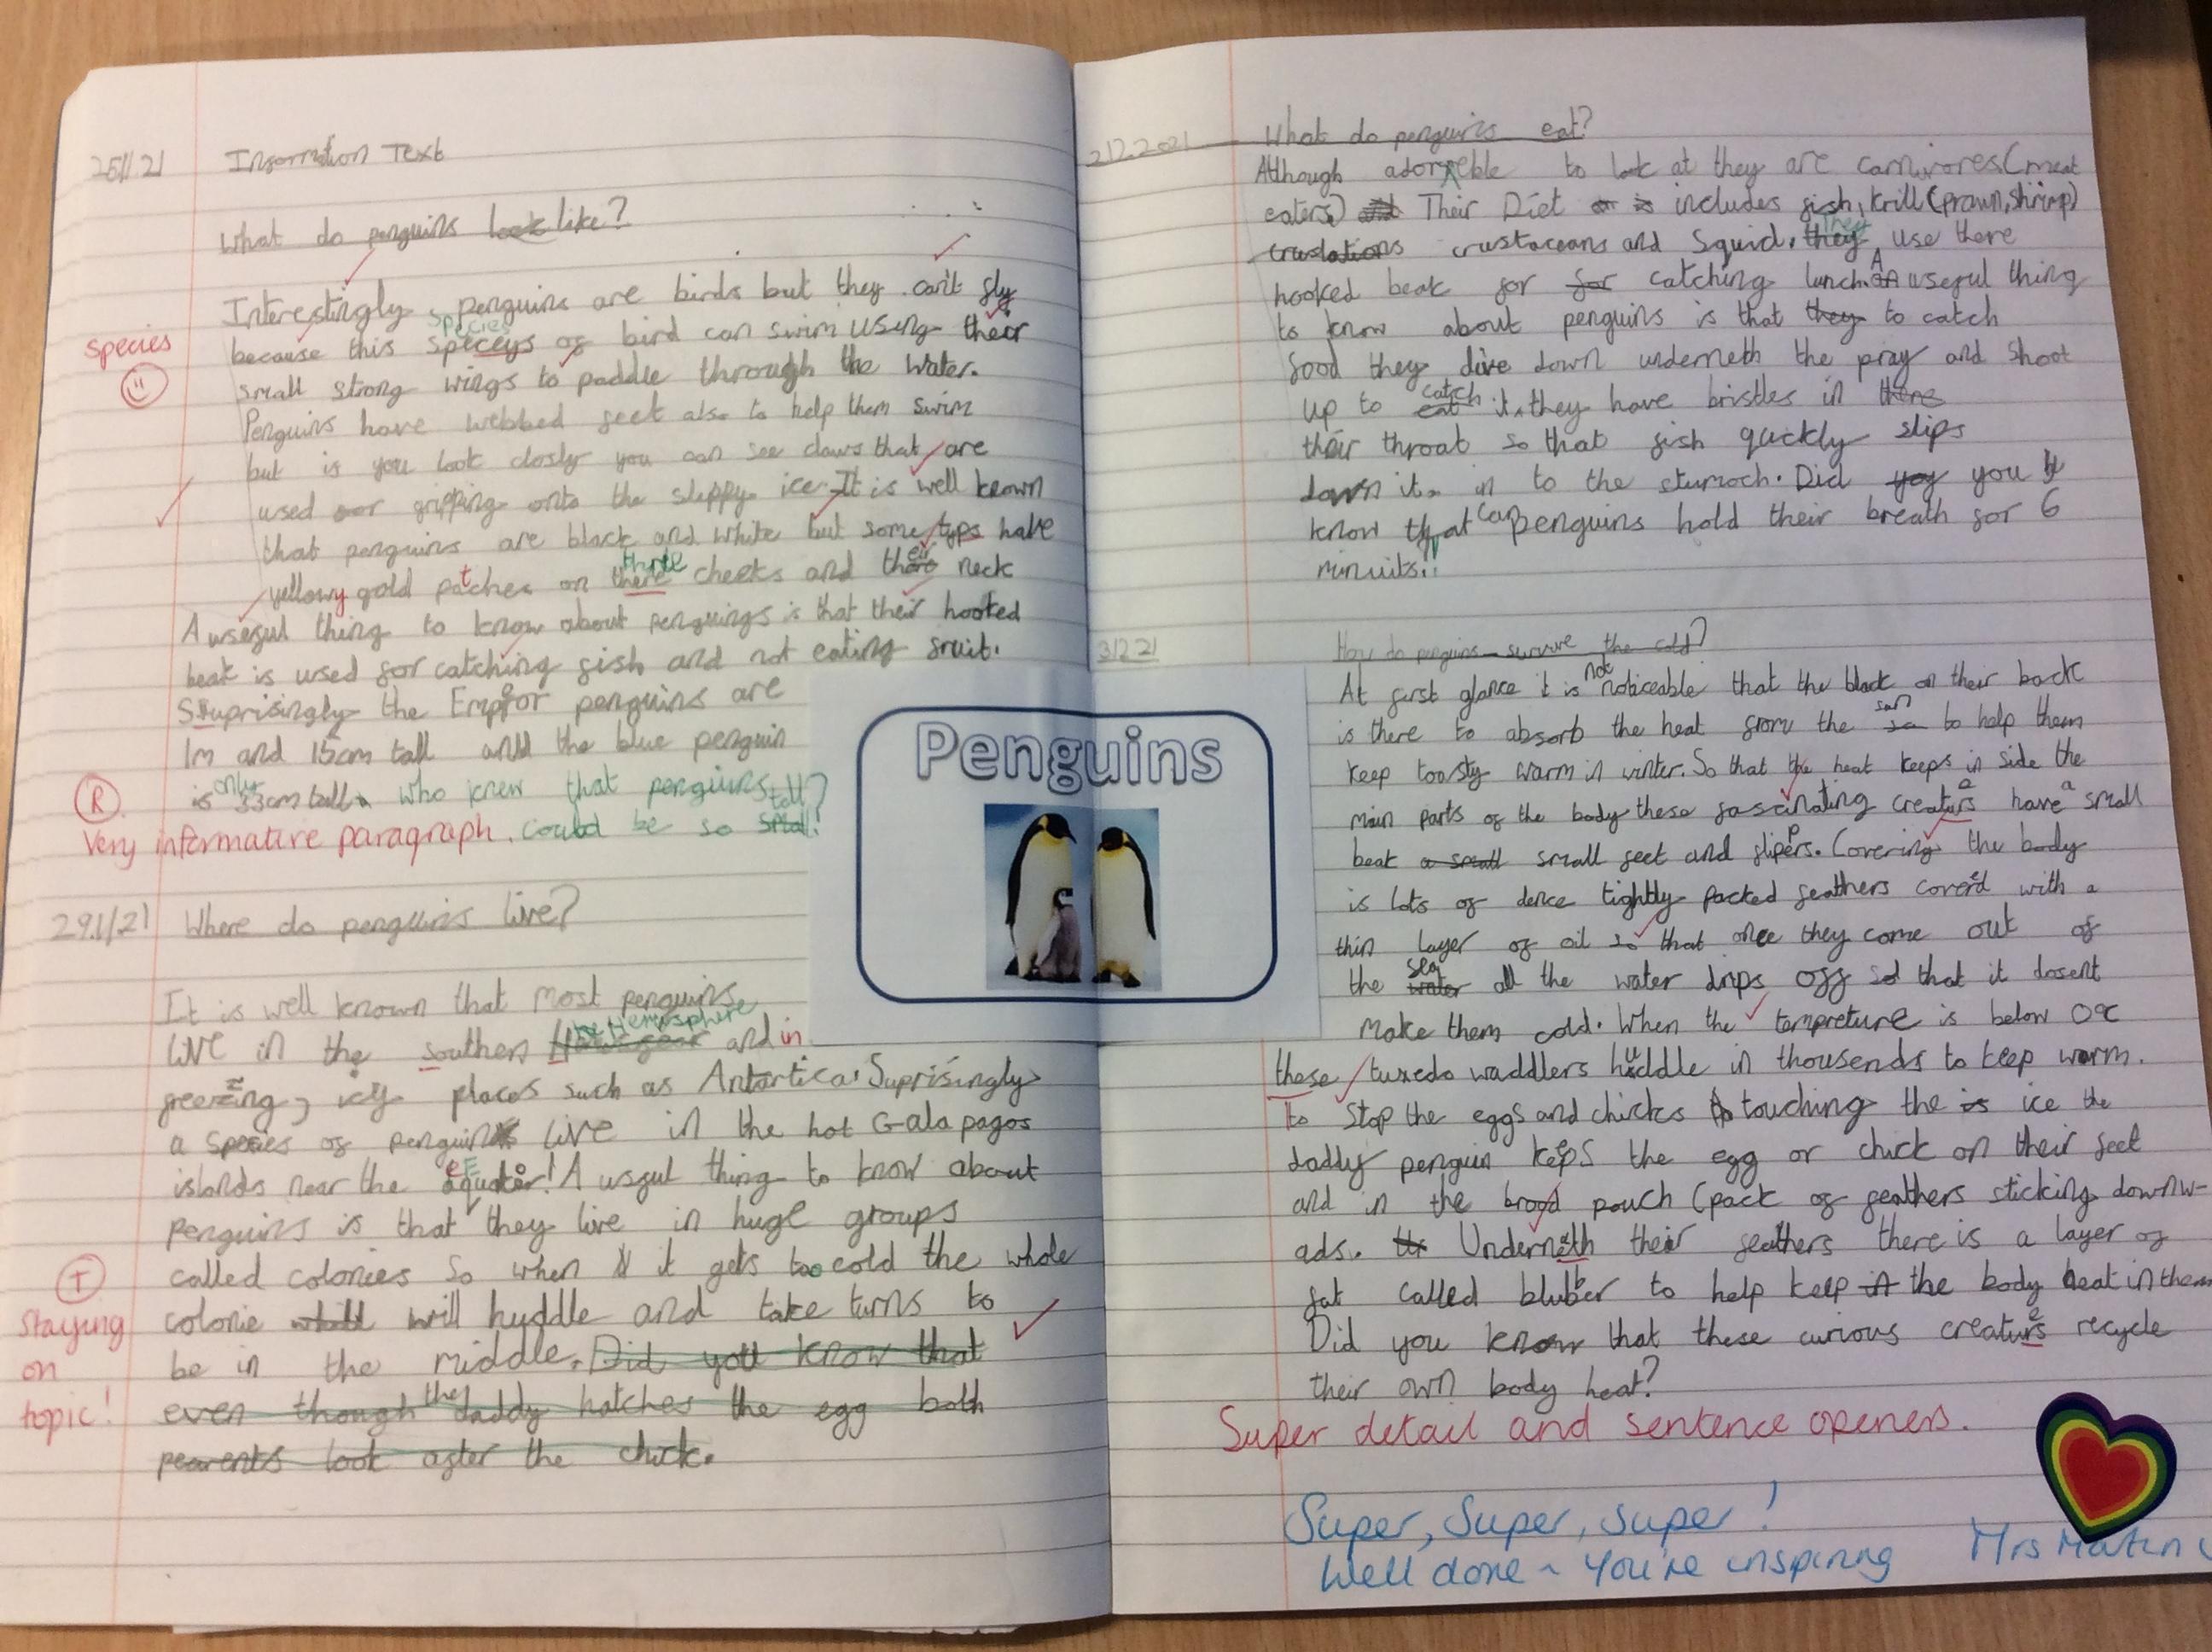 25/11/21 Information Text
What do penguins look like?
Interestingly penguins are birds but they can't fly
species
because this speceys of bird can swim using their
Species
small strong wings to paddle through the water.
Penguins have webbed feet also to help them swim
but if you look closly you can see claws that are
used for gripping onto the slippy ice. It is well known
that penguins are black and white but some typs have
yellowy gold patches on there cheeks and their neck
A useful thing to know about penguings is that their hooked
beak is used for catching fish and not eating fruit.
Suprisingly the Emperor penguins are
1m and 15cm tall and the blue penguin
is only 33cm tall. who knew that penguins
R
could be so small? tall?
Very informative paragraph.
29/1/21 Where do penguins live?
It is well known that most penguins
Hemisphere
live in the southern and in
freezing, icy places such as Antartica. Suprisingly
a species of penguin live in the hot Galapagos
islands near the equator! A usful thing to know about
penguins is that they live in huge groups
called colonies So when it gets too cold the whole
T
colonie will huddle and take turns to
be in the middle. Did you know that
even though the daddy hatches the egg both
pearents look after the chick.
Staying
on
topic!
Penguins
2.12.2021 What do penguins eat?
Although adorable to look at they are carnivores (meat
eaters) and Their Diet includes fish, krill (prawn, shrimp)
crustations crustaceans and squid. they use there
They
hooked beak for for catching lunch. A useful thing
to know about penguins is that they to catch
food they dive down underneth the pray and shoot
up to eat catch it, they have bristles in there
their throat so that fish quickly slips
down it. in to the stumoch. Did yoy you
know that can penguins hold their breath for 6
minuits!!
3.12.21 How do penguins survive the cold?
At first glance it is not noticeable that the black on their back
is there to absorb the heat from the sun to help them
keep toasty warm in winter. So that the heat keeps in side the
main parts of the body these fascinating creatures have a small
beak a small small feet and flipers. Covering the body
is lots of dence tightly packed feathers coverd with a
thin layer of oil so that once they come out of
the water sea all the water drips off so that it dosent
make them cold. When the tempreture is below 0°c
these tuxedo waddlers huddle in thousends to keep warm.
to stop the eggs and chicks touching the is ice the
daddy penguin keeps the egg or chick on their feet
and in the brood pouch (pack of feathers sticking downw-
ads. Underneath their feathers there is a layer of
fat called blubber to help keep the body heat in them
Did you know that these curious creatures recycle
their own body heat?
Super detail and sentence openers.
Super, Super, super!
Well done ~ You're inspiring Mrs Martin